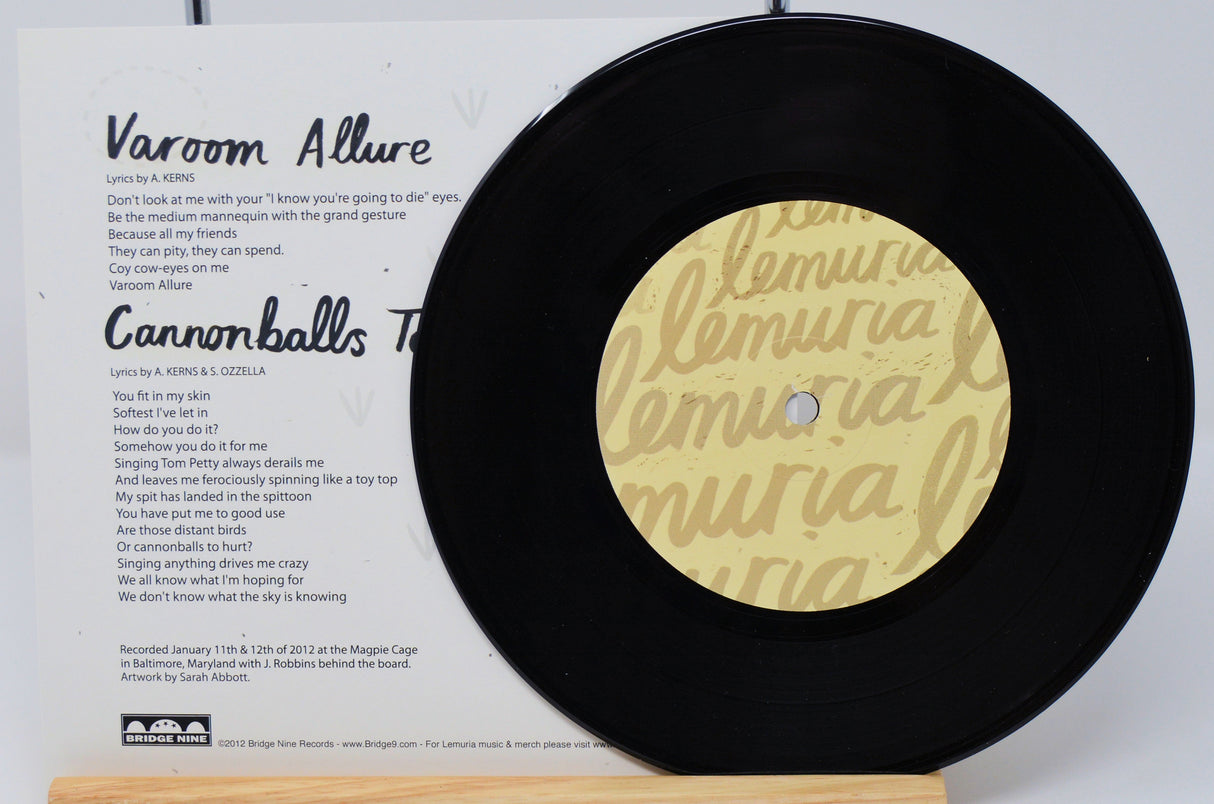 Varoom Allure
Lyrics by A. KERNS
Don't look at me with your "I know you're going to die" eyes.
Be the medium mannequin with the grand gesture
Because all my friends
They can pity, they can spend.
Coy cow-eyes on me
Varoom Allure
Cannonballs
Lyrics by A. KERNS & S. OZZELLA
You fit in my skin
Softest I've let in
How do you do it?
Somehow you do it for me
Singing Tom Petty always derails me
And leaves me ferociously spinning like a toy top
My spit has landed in the spittoon
You have put me to good use
Are those distant birds
Or cannonballs to hurt?
Singing anything drives me crazy
We all know what I'm hoping for
We don't know what the sky is knowing
Recorded January 11th & 12th of 2012 at the Magpie Cage
in Baltimore, Maryland with J. Robbins behind the board.
Artwork by Sarah Abbott.
BRIDGE NINE
©2012 Bridge Nine Records - www.Bridge9.com - For Lemuria music & merch please visit
lemuria
lemuria
lemuria